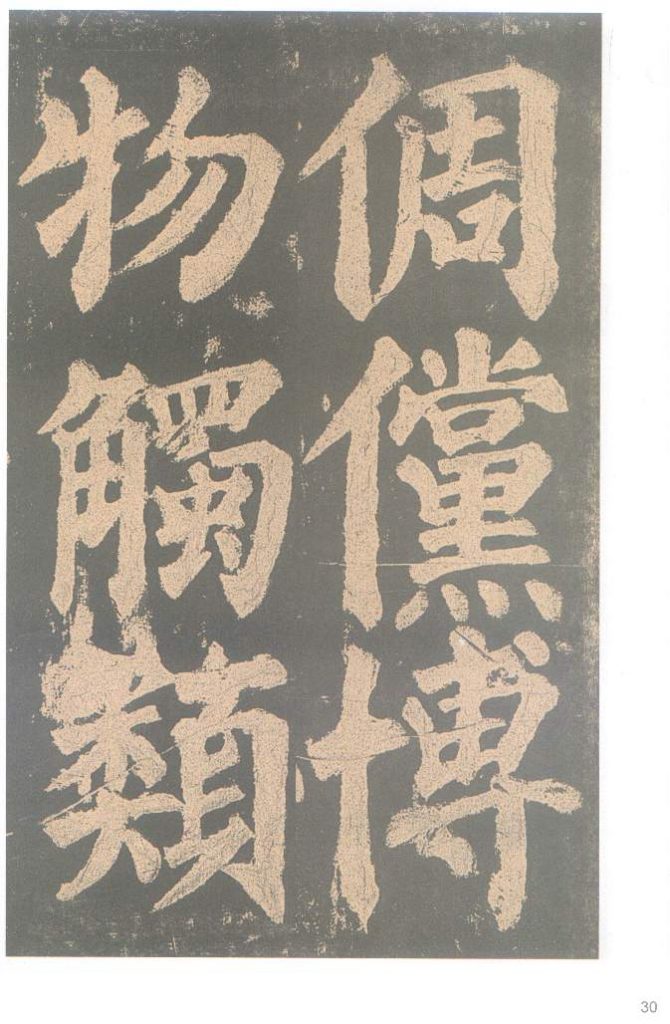 倜儻博
物觸類
30